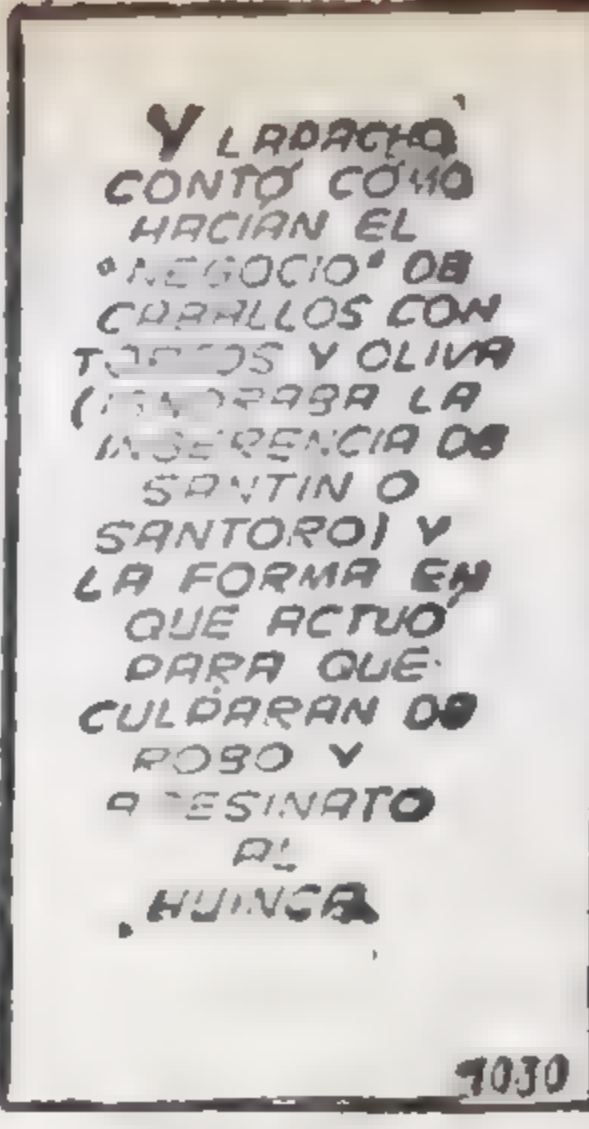 Y LAPACHO
CONTÓ CÓMO
HACIAN EL
"NEGOCIO" DE
CABALLOS CON
Y OLIVA
(IGNORABA LA
INGERENCIA DE
SANTIN O
SANTORO) Y
LA FORMA EN
QUE ACTUÓ
PARA QUE
CULPARAN DE
ROBO Y
ASESINATO
AL
HUINCA
1030